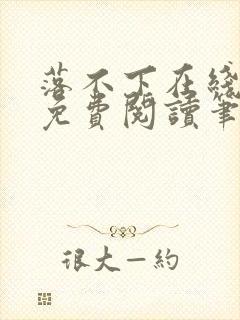 落不下在綫
免費閱讀筆
很大一約